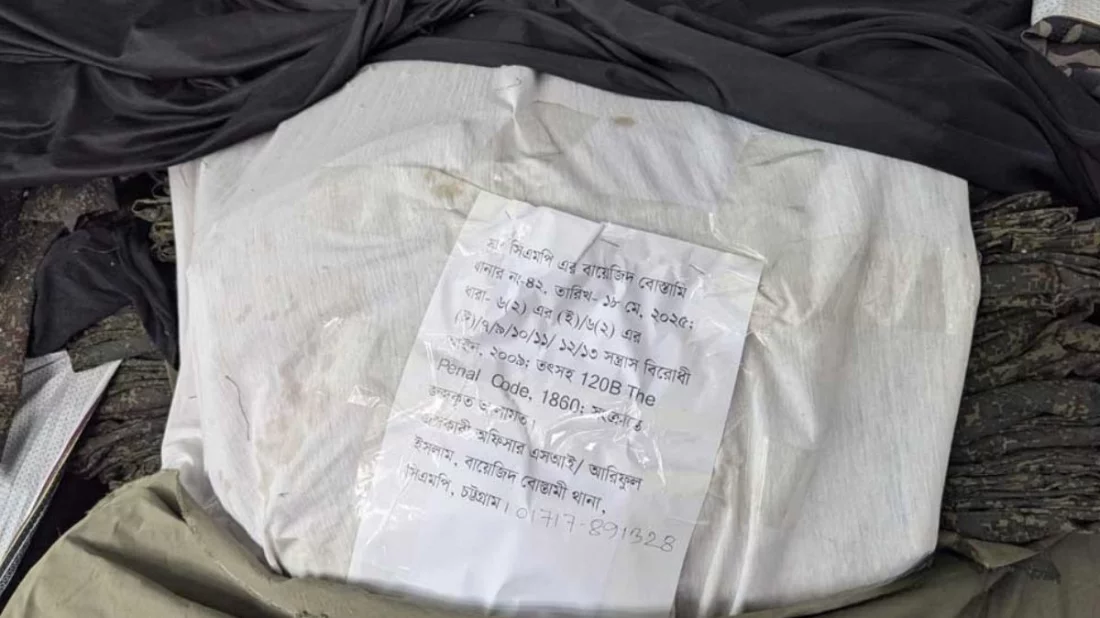 সূত্রঃ সিএমপি এর বায়েজিদ বোস্তামি
থানার নং-৪২, তারিখ- ১৮ মে, ২০২৫;
ধারা- ৬(২) এর (ই)/৬(২) এর
(ঈ)/৭/৮/১০/১১/ ১২/১৩ সন্ত্রাস বিরোধী
আইন, ২০০৯; তৎসহ 120B The
Penal Code, 1860; সংক্রান্ত
জব্দকৃত আলামত।
অফিসার এসআই/ আরিফুল
ইসলাম, বায়েজিদ বোস্তামী থানা,
সিএমপি, চট্টগ্রাম। 01717-891328